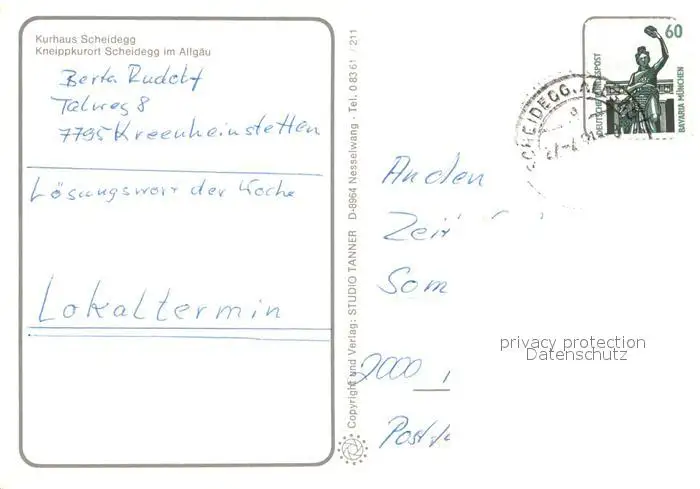 Kurhaus Scheidegg
Kneippkurort Scheidegg im Allgäu
Berta Rudolf
Talweg 8
7795 Kreenheinstetten
Lösungswort der Woche
Lokaltermin
Copyright und Verlag: STUDIO TANNER D-8964 Nesselwang · Tel. 0 83 61 / 211
60
DEUTSCHE BUNDESPOST
BAYARIA MÜNCHEN
SCHEIDEGG, A
An den
Zeit
Som
2000
Postf
privacy protection
Datenschutz